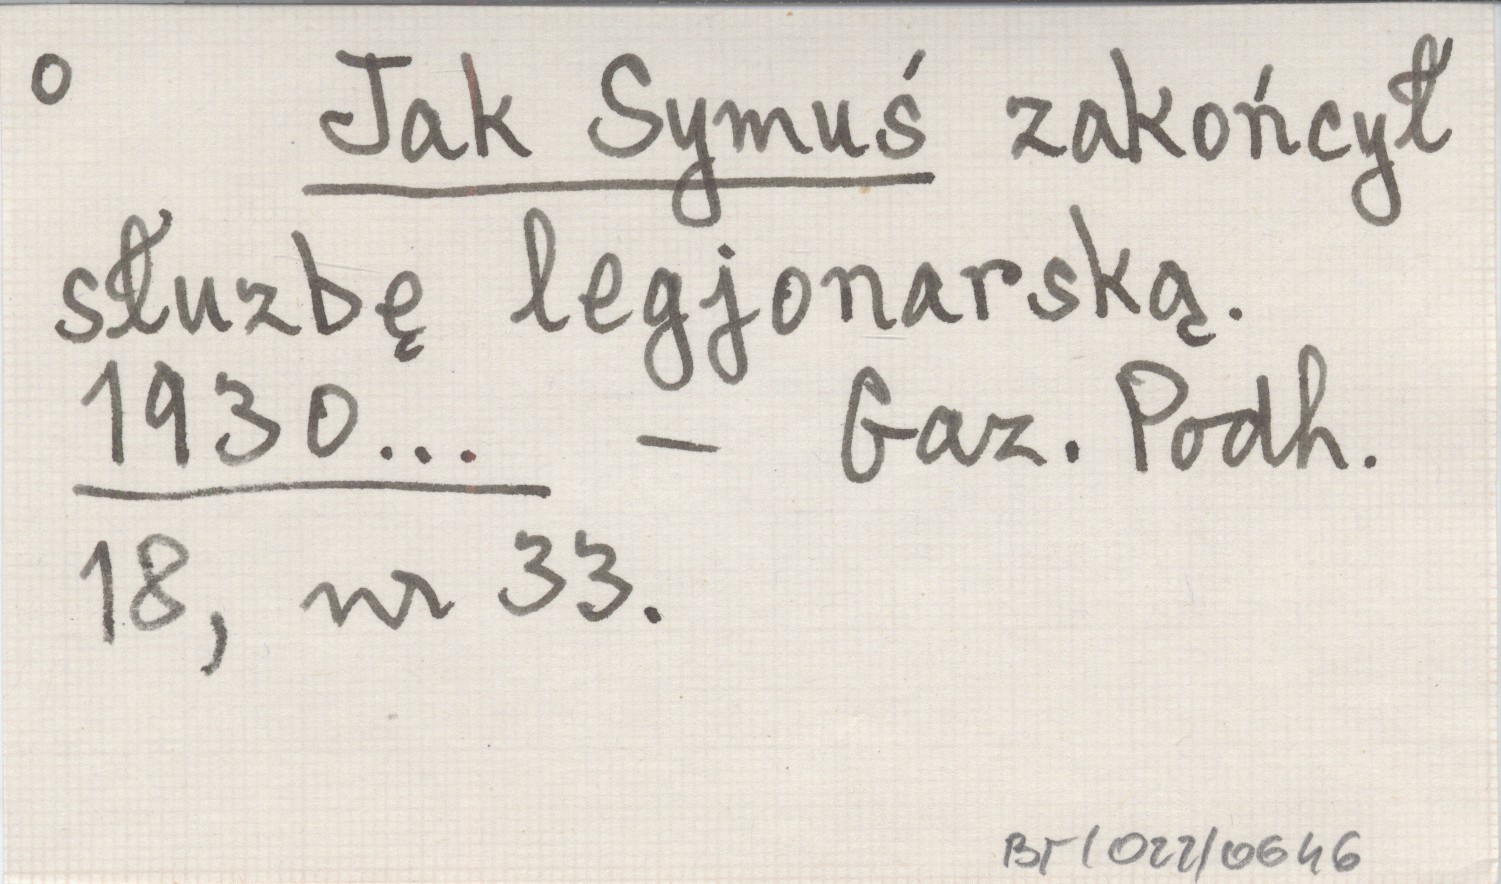 o Jak Symuś zakończył
słuzbę legjonarską.
1930... – Gaz. Podh.
18, nr 33.
BT/022/0646